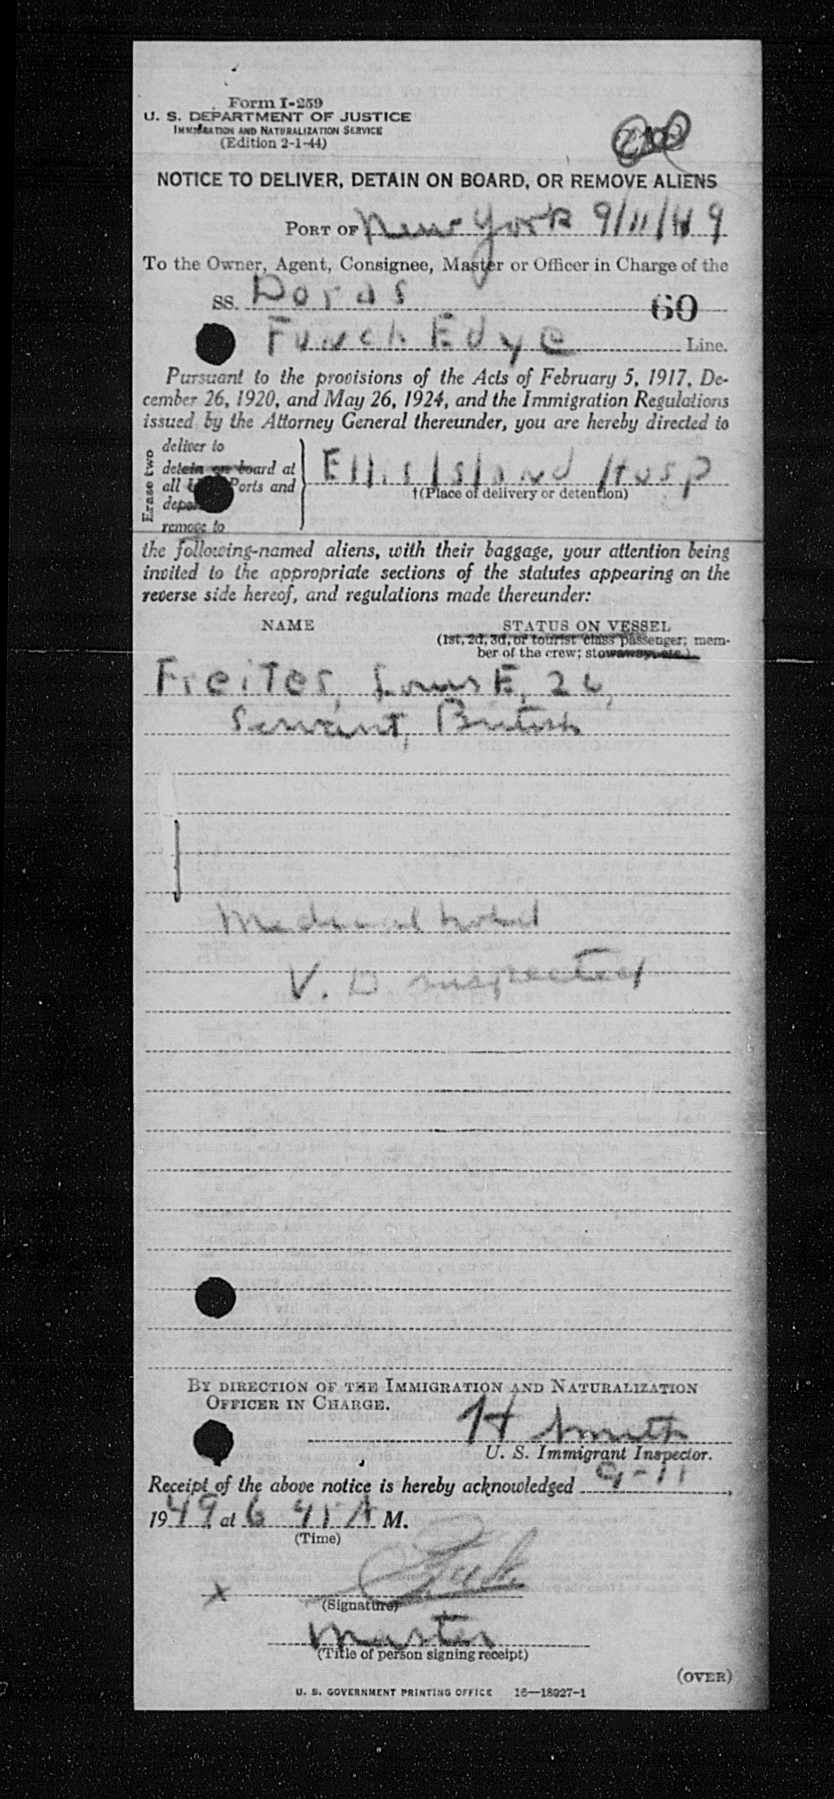 Form I-259
U. S. DEPARTMENT OF JUSTICE
IMMIGRATION AND NATURALIZATION SERVICE
(Edition 2-1-44)
NOTICE TO DELIVER, DETAIN ON BOARD, OR REMOVE ALIENS
PORT OF New York 9/11/49
To the Owner, Agent, Consignee, Master or Officer in Charge of the
SS. Doros 60
Funch Edye Line.
Pursuant to the provisions of the Acts of February 5, 1917, De-
cember 26, 1920, and May 26, 1924, and the Immigration Regulations
issued by the Attorney General thereunder, you are hereby directed to
Erase two
deliver to
detain on board at
all Ports and
remove to
Ellis Island Hosp
†(Place of delivery or detention)
the following-named aliens, with their baggage, your attention being
invited to the appropriate sections of the statutes appearing on the
reverse side hereof, and regulations made thereunder:
NAME STATUS ON VESSEL
(1st, 2d, 3d, or tourist class passenger; mem-
ber of the crew; stowaway, etc.)
Freites, Louis E, 26,
Servant, British
Medical hold
V. D suspected
BY DIRECTION OF THE IMMIGRATION AND NATURALIZATION
OFFICER IN CHARGE.
H Smith
U. S. Immigrant Inspector.
Receipt of the above notice is hereby acknowledged 9-11,
1949 at 6 45 A M.
(Time)
x
(Signature)
Master
(Title of person signing receipt)
(OVER)
U. S. GOVERNMENT PRINTING OFFICE 16—18927-1